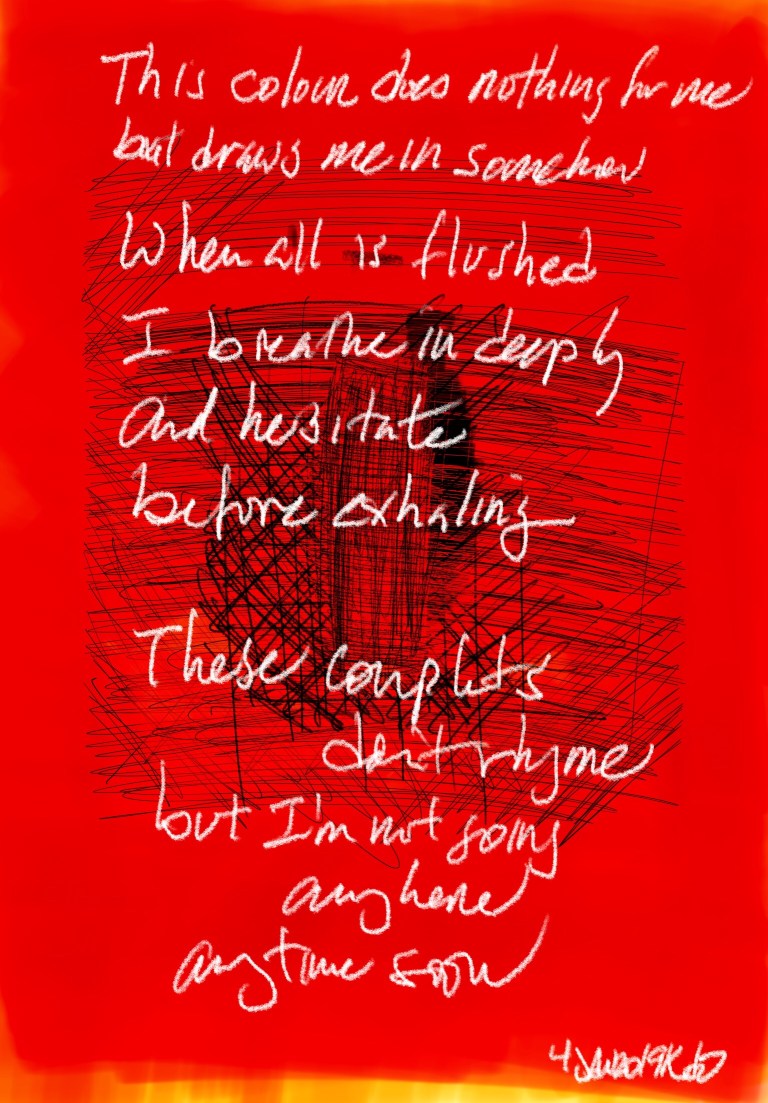 This colour does nothing for me
but draws me in somehow
When all is flushed
I breathe in deeply
and hesitate
before exhaling
These couplets
don't rhyme
but I'm not going
anyhere
anytime soon